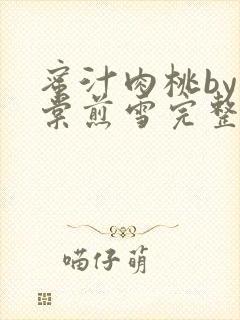 蜜汁肉桃by
棠煎雪完整
喵仔萌